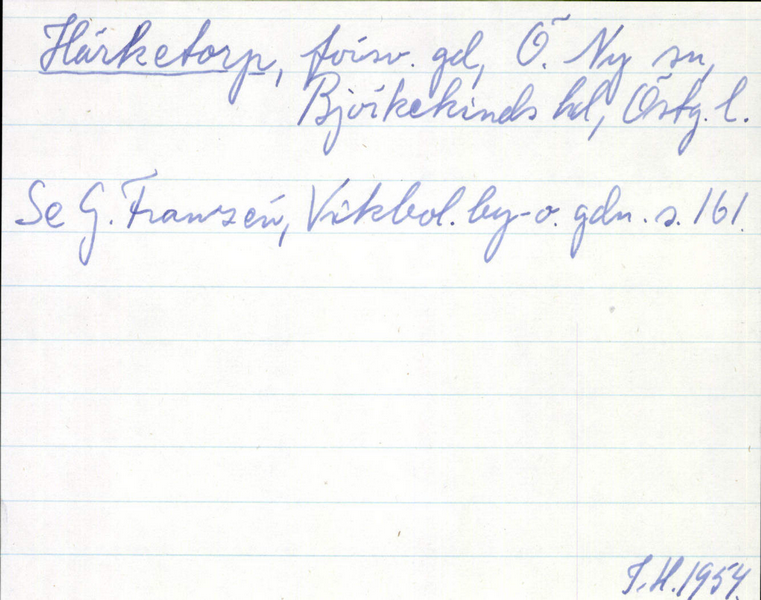 Härketorp, försv. gd, Ö. Ny sn,
Björkekinds hd, Östg. l.
Se G. Franzén, Vikbol. by- o. gdn. s. 161.
I.H. 1954.